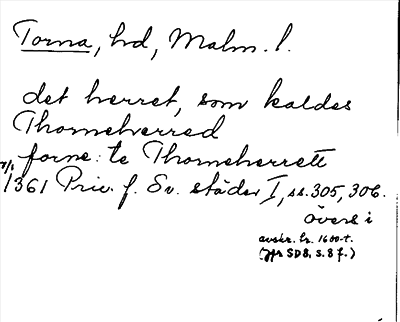 Torna, hd, Malm. l.
det herret, som kaldes
Thorneherred
forne: te Thorneherrett
7/1 1361 Priv. f. Sv. städer I, ss. 305, 306.
övers i
avskr. fr. 1600-t.
(jfr SD8, s. 8 f.)